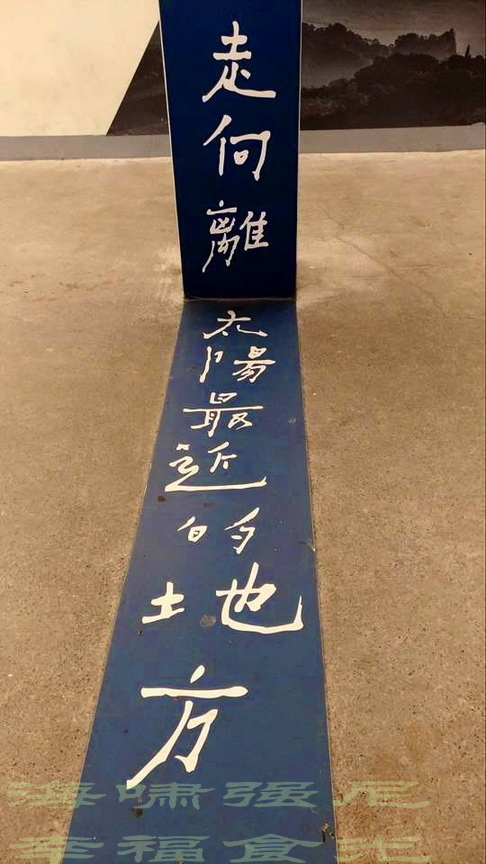 走向離
太陽最近的地方
海嘯強尼
幸福食光